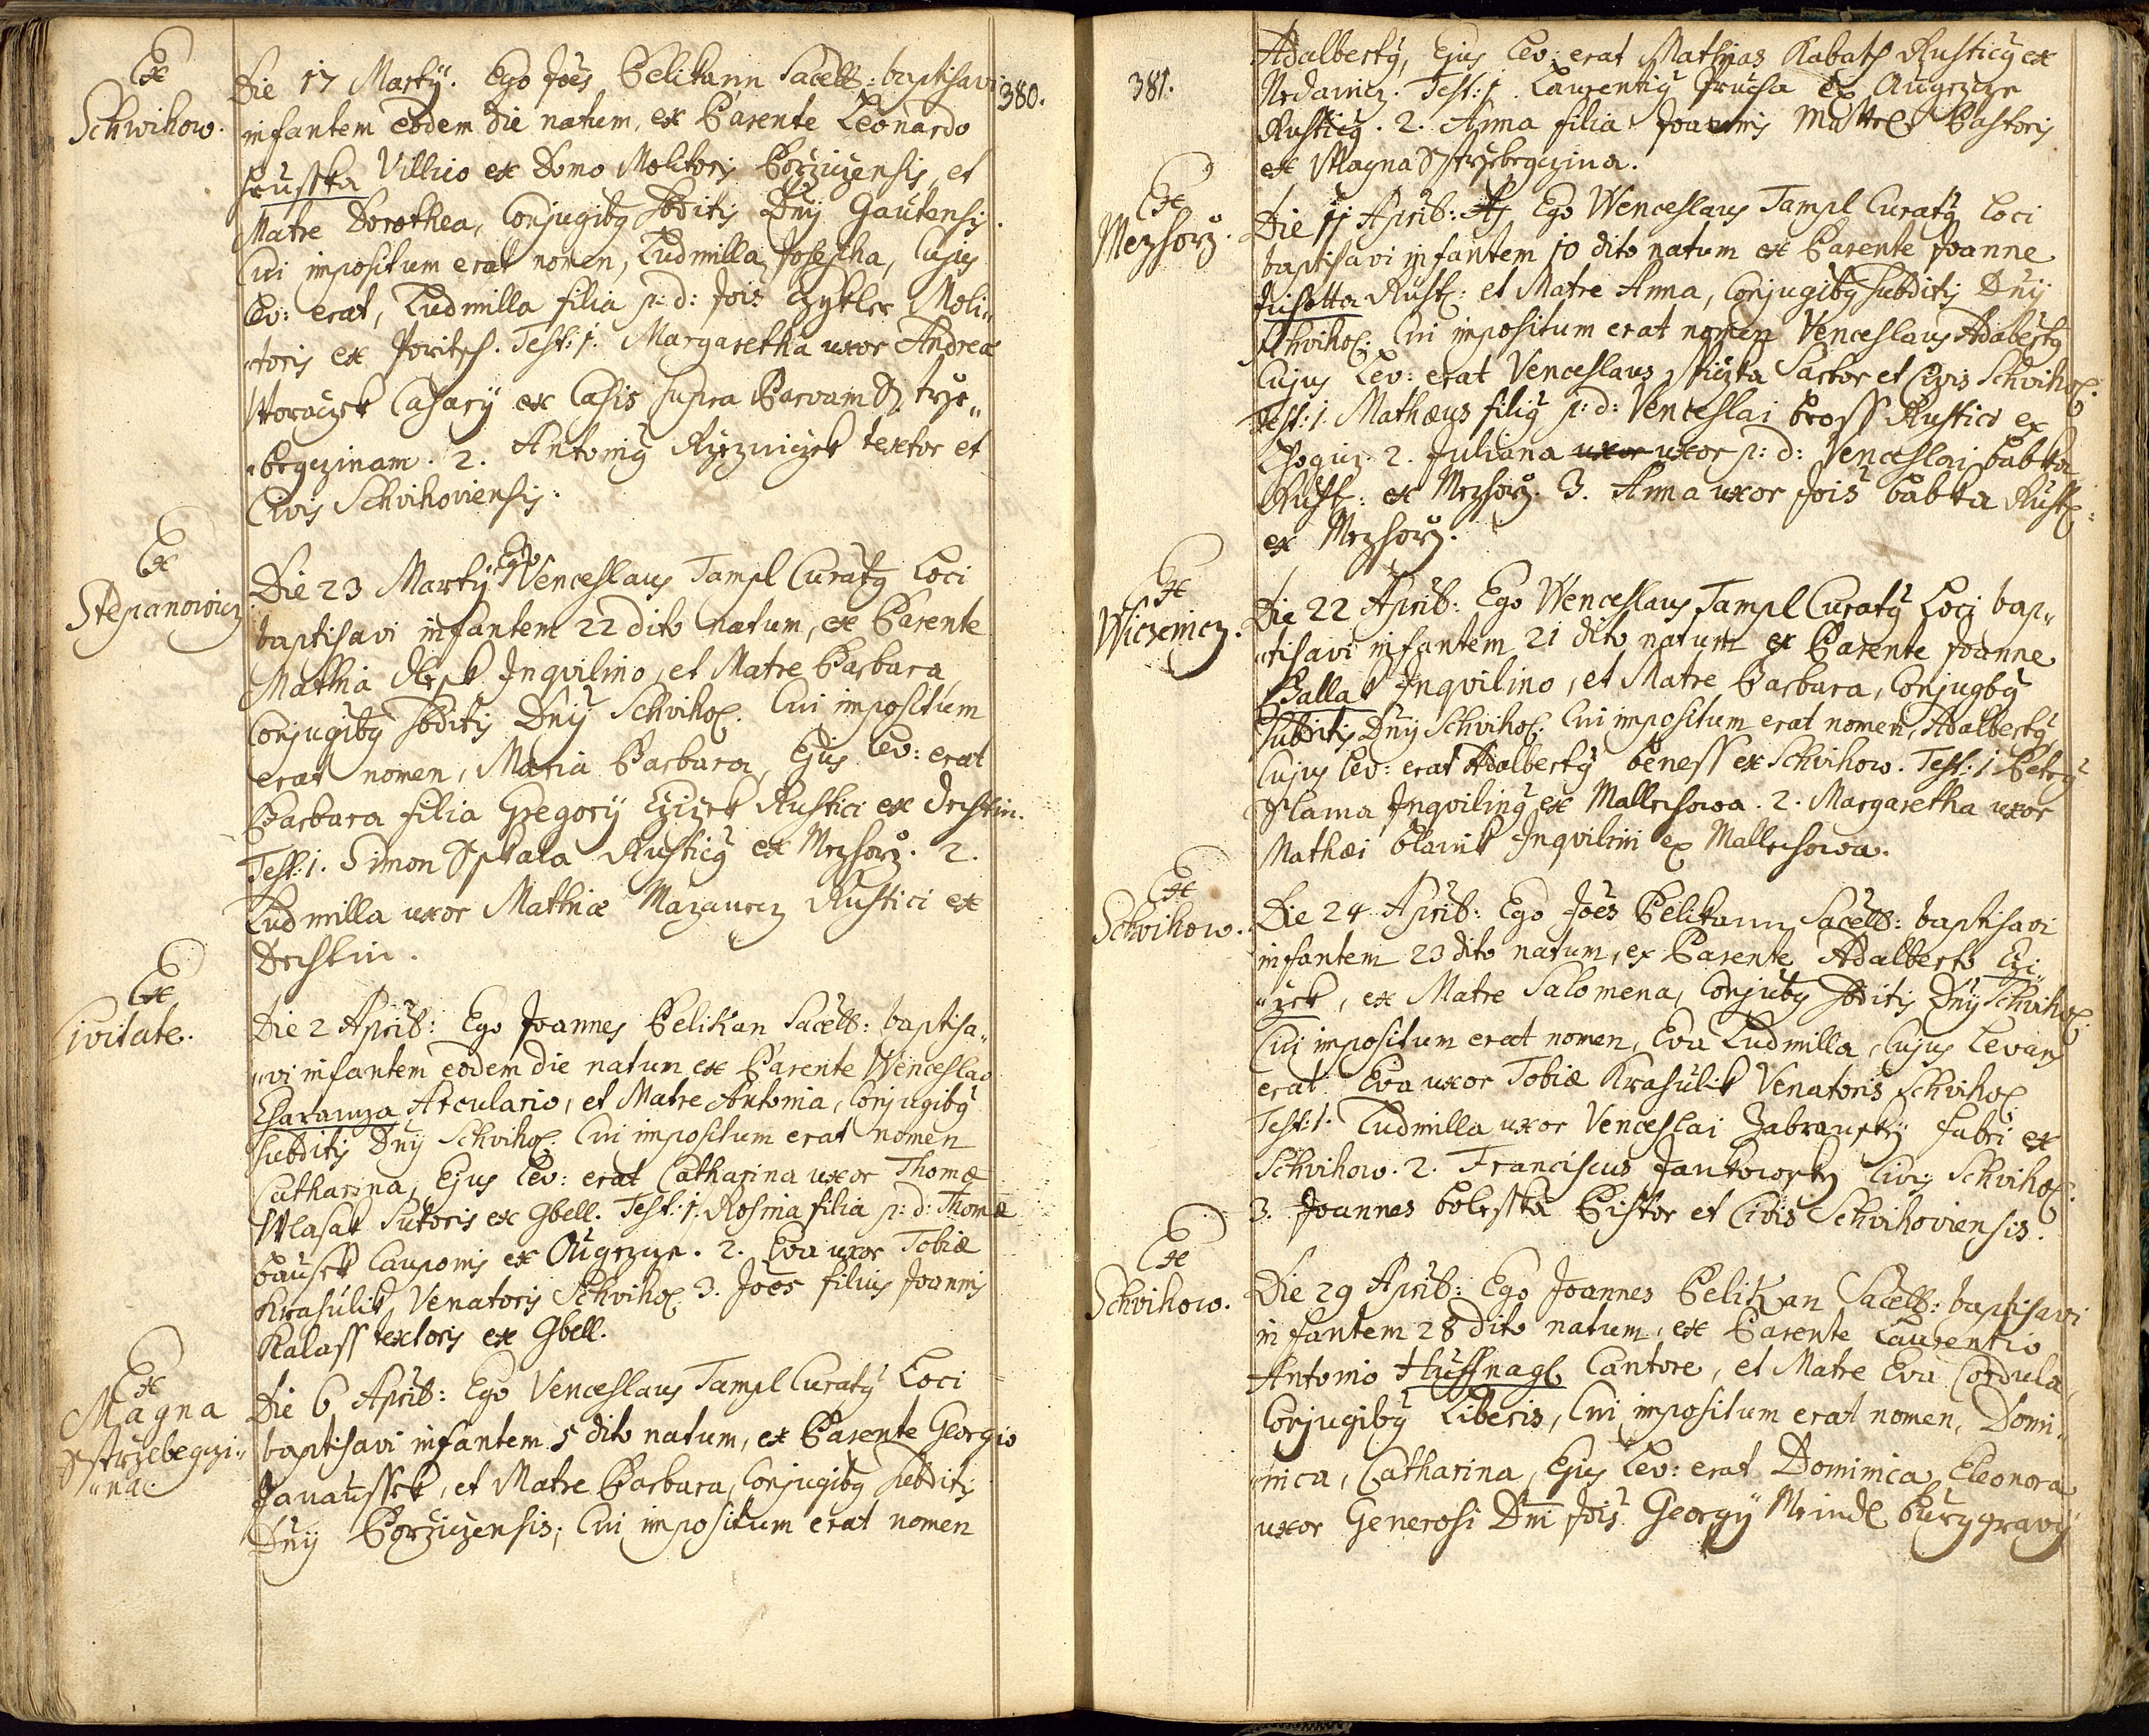 380.
Ex
Schwihow.
Die 17 Martÿ. Ego Joes Pelikann Sacell: baptisavi
infantem eodem die natum, ex Parente Leonardo
Villico ex Domo Molitoris Porzicensis, et
Matre Dorothea, Conjugibg sbditis Dnÿ Gautensis.
Cui impositum erat nomen, Ludmilla Josepha, Cujus
Lev: erat, Ludmilla filia p: d: Jois Moli„
„toris ex Poritsch. Test: 1. Margaretha uxor Andreæ
Woraczek Casarÿ ex Casis supra Parvam Strze„
„begczinam. 2. Antonig Rzezniczek textor et
Civis Schvihoviensis.
Ex
Stepanowicz
Die 23 Martÿ Ego Venceslaus Tampl Curatg Loci
baptisavi infantem 22 dito natum, ex Parente
Mathia Inqvilino, et Matre Barbara,
Conjugibg sbditis Dnÿ Schviho: Cui impositum
erat nomen, Maria Barbara, Ejus Lev: erat
Barbara filia Gregorÿ Czizek Rustici ex Drslin.
Test: 1. Simon Sskala Rusticg ex Mezhorz. 2.
Ludmilla uxor Mathiæ Mazanecz Rustici ex
Drslin.
Ex
Civitate.
Die 2 Aprill: Ego Joannes Pelikan Sacell: baptisa„
„vi infantem eodem die natum ex Parente Wenceslao
Charamza Arculario, et Matre Antonia, Conjugibg
subditis Dnÿ Schviho: Cui impositum erat nomen
Catharina, Ejus Lev: erat Catharina uxor Thomæ
Wlasak Sutoris ex Gbell. Test: 1. Rosina filia p: d: Thomæ
Bausek Cauponis ex Augezze. 2. Eva uxor Tobiæ
Krasulik Venatoris Schviho: 3. Joes filius Joannis
Kalass textoris ex Gbell.
Ex
Magna
Strzebegczi„
„na.
Die 6 Aprill: Ego Venceslaus Tampl Curatg Loci
baptisavi infantem 5 dito natum, ex Parente Georgio
Janaussek, et Matre Barbara, Conjugibg subditis
Dnÿ Porzicensis, Cui impositum erat nomen
381.
Adalbertg, Ejus Lev: erat Mathias Kabath Rusticg ex
Nedanicz. Test: 1. Laurentig Prucha ex Augezze
Rusticg. 2. Anna filia Joannis Pastoris
ex Magna Strzebegczina.
Ex
Mezhorz.
Die 11 Aprill: Ego Wenceslaus Tampl Curatg Loci
baptisavi infantem 10 dito natum ex Parente Joanne
Rust: et Matre Anna, Conjugibg subditis Dnÿ
Schviho: Cui impositum erat nomen Venceslaus Adalbertg
Cujus Lev: erat Venceslaus Sartor et Civis Schviho:
Test: 1. Mathæus filig p: d: Venceslai Bross Rustici ex
2. Juliana uxor uxor p: d: Venceslai Babka
Rust: ex Mezhorz. 3. Anna uxor Jois Babka Rust:
ex Mezhorz.
Ex
Wiczenicz.
Die 22 Aprill: Ego Wenceslaus Tampl Curatg Loci bap„
„tisavi infantem 21 dito natum ex Parente Joanne
Ballak Inqvilino, et Matre Barbara, Conjugbg
subditis Dnÿ Schviho: Cui impositum erat nomen, Adalbertg
Cujus Lev: erat Adalbertg Beness ex Schvihow. Test: 1. Petrg
Slama Inqviling ex Mallechowa. 2. Margaretha uxor
Mathæi Inqvilini ex Mallechowa.
Ex
Schvihow.
Die 24 Aprill: Ego Joes Pelikann Sacell: baptisavi
infantem 23 dito natum, ex Parente Adalberto Czi„
„zek, ex Matre Salomena, Conjubg sbditis Dnÿ Schviho:
Cui impositum erat nomen, Eva Ludmilla, Cujus Levans
erat Eva uxor Tobiæ Krasulik Venatoris Schviho:
Test: 1. Ludmilla uxor Venceslai Zabransky Fabri ex
Schvihow. 2. Franciscus Jankowsky Civis Schviho:
3. Joannes Bolestka Pistor et Civis Schvihoviensis.
Ex
Schvihow.
Die 29 Aprill: Ego Joannes Pelikan Sacell: baptisavi
infantem 28 dito natum, ex Parente Laurentio
Antonio Hussnagl Cantore, et Matre Eva Cordula,
Conjugibg Liberis, Cui impositum erat nomen, Domi„
„nica, Catharina, Ejus Lev: erat Dominica Eleonora
uxor Generosi Dni Jois Georgÿ Meindl Burggravÿ